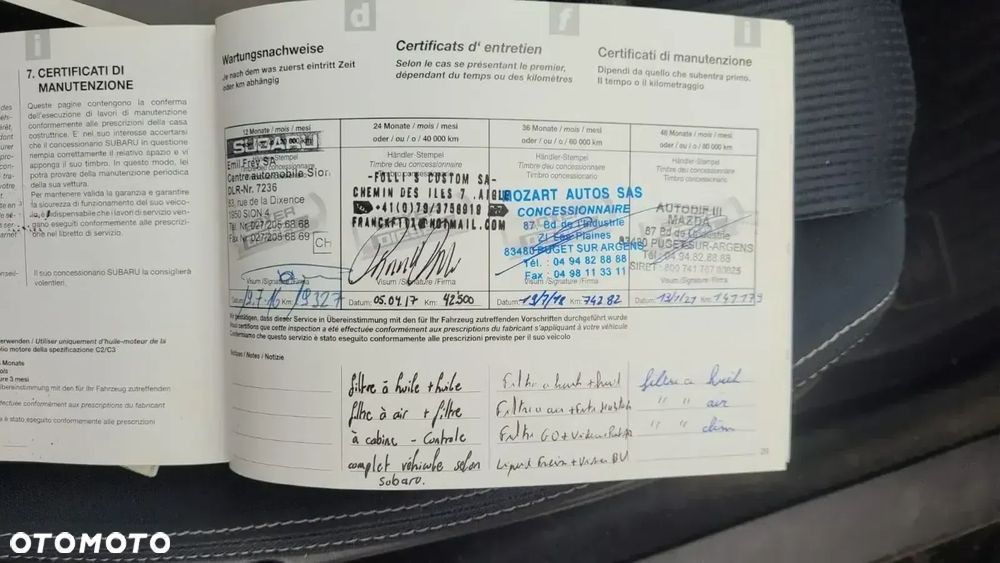 i
d
f
i
7. CERTIFICATI DI
MANUTENZIONE
Queste pagine contengono la conferma
dell'esecuzione di lavori di manutenzione
conformemente alle prescrizioni della casa
costruttrice. E' nel suo interesse accertarsi
che il concessionario SUBARU in questione
riempia correttamente il relativo spazio e vi
apponga il suo timbro. In questo modo, lei
potrà provare della manutenzione periodica
della sua vettura.
Per mantenere valida la garanzia e garantire
la sicurezza di funzionamento del suo veico-
lo, è indispensabile che i lavori di servizio ven-
gano eseguiti conformemente alle prescrizio-
ne nel libretto di servizio.
Il suo concessionario SUBARU la consiglierà
volentieri.
erwenden / Utiliser uniquement d'huile-moteur de la
olio motore della spezificazione C2/C3
Monate
mois
ure 3 mesi
Übereinstimmung mit den für Ihr Fahrzeug zutreffenden
fectuée conformément aux prescriptions du fabricant
è stato eseguito conformemente alle prescrizioni
Wartungsnachweise
Je nach dem was zuerst eintritt Zeit
oder km abhängig
Certificats d' entretien
Selon le cas se présentant le premier,
dépendant du temps ou des kilomètres
Certificati di manutenzione
Dipendi da quello che subentra primo.
Il tempo o il kilometraggio
12 Monate / mois / mesi
SUBARU
Händler-Stempel
Emil Frey SA
Centre automobile Sion
DLR-Nr. 7236
83, rue de la Dixence
1950 SION 4
Tel. Nr. 027/205 68 68
Fax Nr. 027/205 68 69
Ch
Visum /Signature /Firma
Datum: 9.7.16 Km: 19327
24 Monate / mois / mesi
oder / ou / o / 40 000 km
Händler-Stempel
Timbre du concessionnaire
Timbro concessionario
-FOLLI'S CUSTOM SA-
CHEMIN DES ILES 7, AIGLE
+41(0)79/3758018
Visum /Signature /Firma
Datum: 05.04.17 Km: 42500
36 Monate / mois / mesi
oder / ou / o / 60 000 km
Händler-Stempel
Timbre du concessionnaire
Timbro concessionario
MOZART AUTOS SAS
CONCESSIONNAIRE
87 Bd de l'Industrie
ZI Les Plaines
83480 PUGET SUR ARGENS
Tél. : 04 94 82 88 88
Fax : 04 98 11 33 11
Visum /Signature /Firma
Datum: 19/7/18 Km: 74282
48 Monate / mois / mesi
oder / ou / o / 80 000 km
Händler-Stempel
Timbre du concessionnaire
Timbro concessionario
MAZDA
87 Bd de l'Industrie
83480 PUGET-SUR-ARGENS
Tél : 04.94.82.88.88
Visum /Signature /Firma
Datum: 13/1/21 Km:
Wir bestätigen, dass dieser Service in Übereinstimmung mit den für Ihr Fahrzeug zutreffenden Vorschriften durchgeführt wurde
Nous certifions que cette inspection a été effectuée conformément aux prescriptions du fabricant s'appliquant à votre véhicule
Confermiamo che questo servizio è stato eseguito conformemente alle prescrizioni previste per il suo veicolo
Notizen / Notes / Notizie
filtre à huile + huile
filtre à air + filtre
à cabine - Controle
complet véhicule selon
Subaru.
Filtre a huile + huile
Filtre a air +
Filtre GO +
filtre a huile
" " air
" " clim
29
OTOMOTO